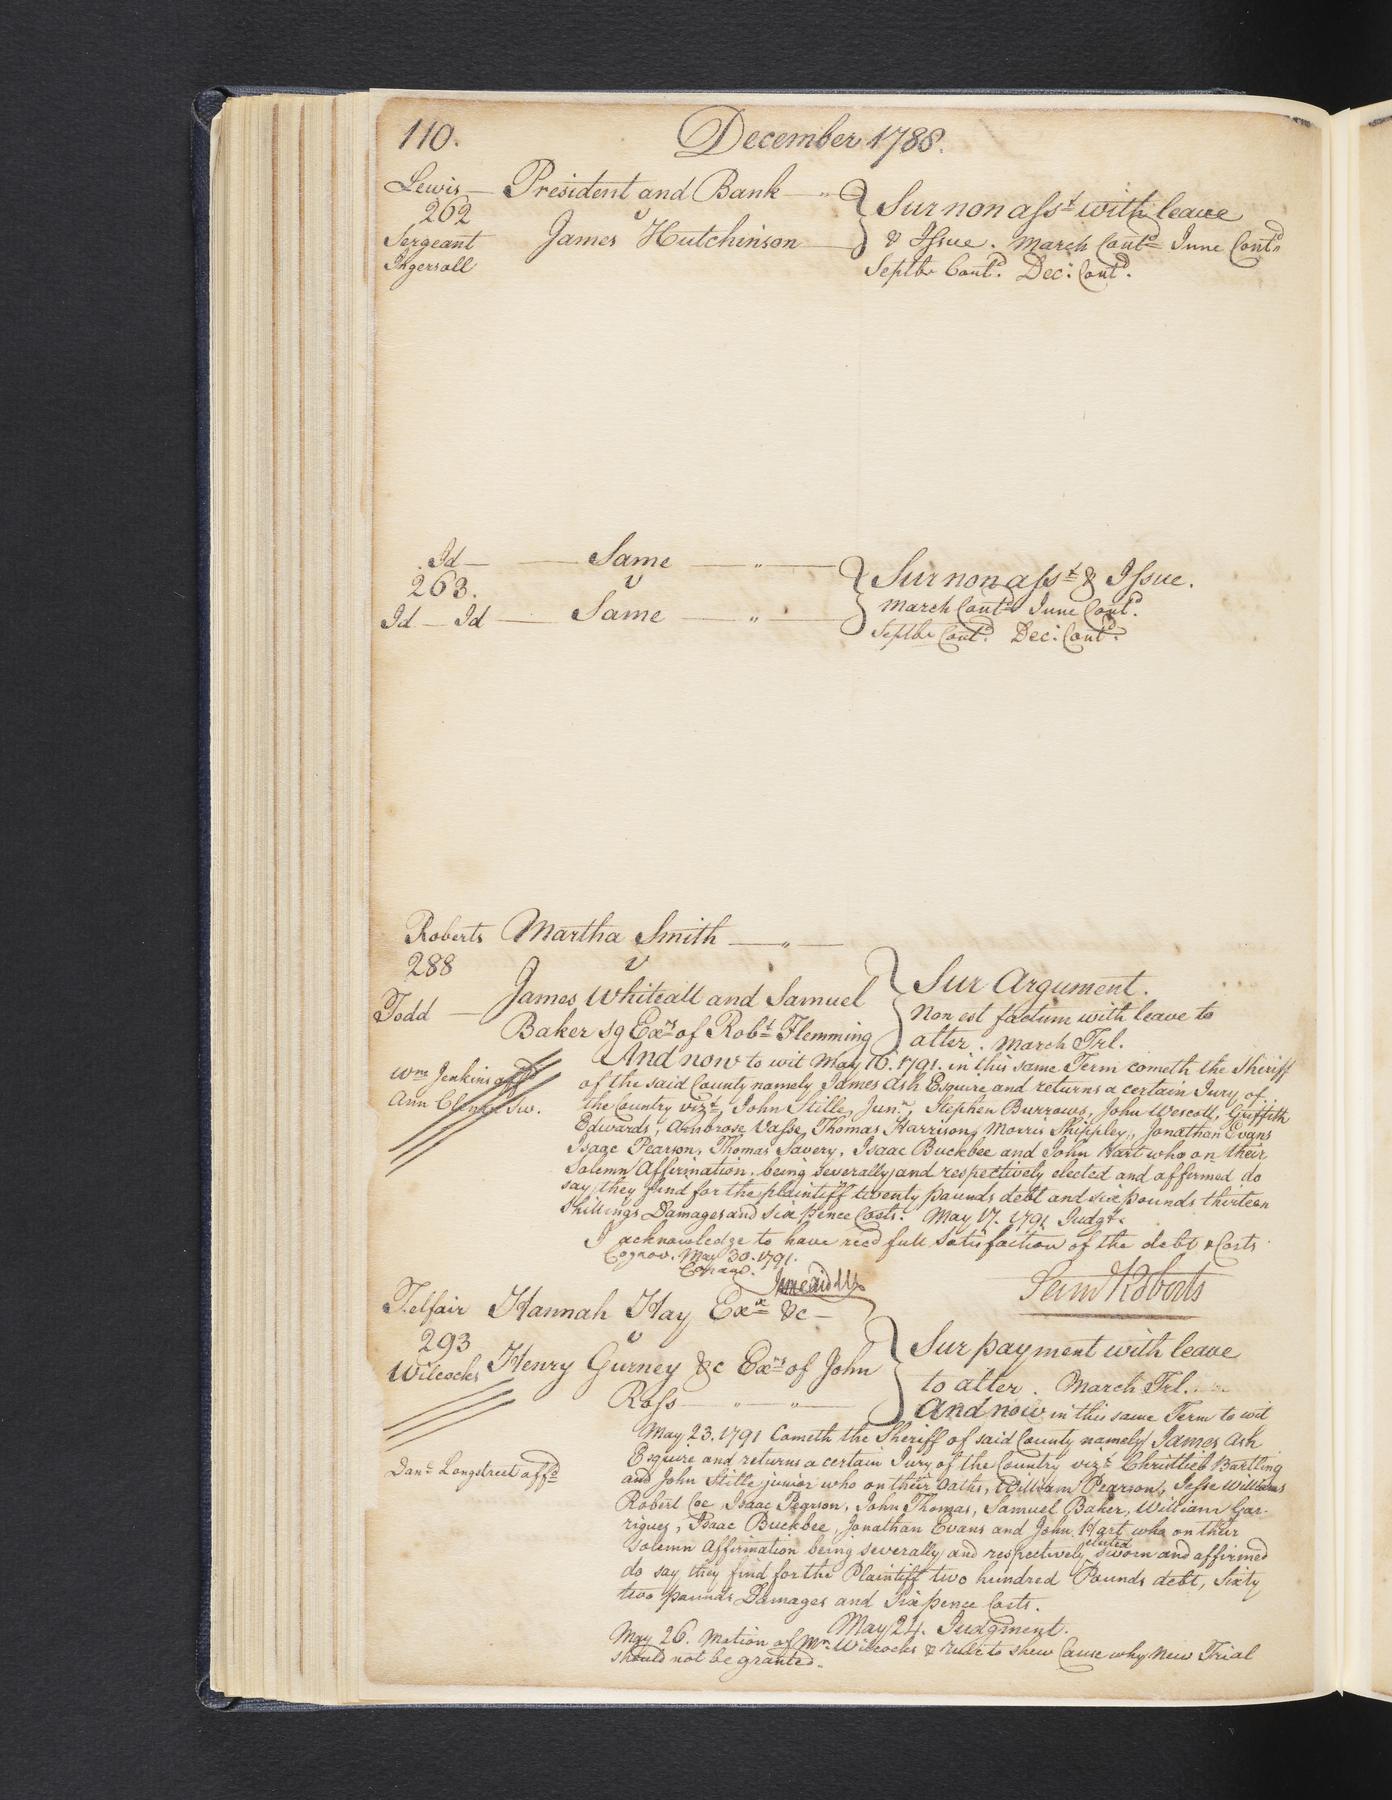 110. December 1788.
Lewis — President and Bank — "
262 v
Sergeant James Hutchinson —
Ingersoll
Sur non asst with leave
& Issue. March Contd June Contd
Septbr Contd. Dec: Contd.
Id — Same — "
263. v
Id — Id — Same — "
Sur non asst & Issue.
March Contd June Contd.
Septbr Contd. Dec: Contd.
Roberts Martha Smith — "
288 v
Todd — James Whiteall and Samuel
Baker sg Exrs of Robt Flemming
Sur Argument.
Non est factum with leave to
alter. March Trl.
Wm Jenkins affd
Ann Sw.
And now to wit May 16. 1791. in this same Term cometh the Sheriff
of the said County namely James Ash Esquire and returns a certain Jury of
the Country vizt, John Stille Junr, Stephen Burrows, John Wescott, Griffith
Edwards, Ambrose Vasse, Thomas Harrison, Morris Shippley, Jonathan Evans
Isaac Pearson, Thomas Savery, Isaac Buckbee and John Hart who on their
Solemn Affirmation. being severally and respectively elected and affirmed do
say they find for the plaintiff twenty pounds debt and six pounds thirteen
Shillings Damages and six pence Costs. May 17. 1791 Judgt.
I acknowledge to have recd full Satisfaction of the debt & Costs
Cognov. May 30. 1791.
Coram
Saml Roberts
Telfair Hannah Hay Exx &c —
293 v
Wilcocks Henry Gurney &c Exrs of John
Ross — " — "
Sur payment with leave
to alter. March Trl.
And now in this same Term to wit
Danl Longstreet affd
May 23. 1791 Cometh the Sheriff of said County namely James Ash
Esquire and returns a certain Jury of the Country vizt Christlieb Bartling
and John Stille junior who on their Oaths, William Pearson, Jesse Williams
Robert Coe, Isaac Pearson, John Thomas, Samuel Baker, William Gar-
rigues, Isaac Buckbee, Jonathan Evans and John Hart who on their
Solemn Affirmation being severally and respectively elected sworn and affirmed
do say they find for the Plaintiff two hundred Pounds debt, Sixty
two pounds Damages and Six pence Costs.
May 24. Judgment.
May 26. Motion of Mr. Wilcocks & rule to shew Cause why New Trial
should not be granted.